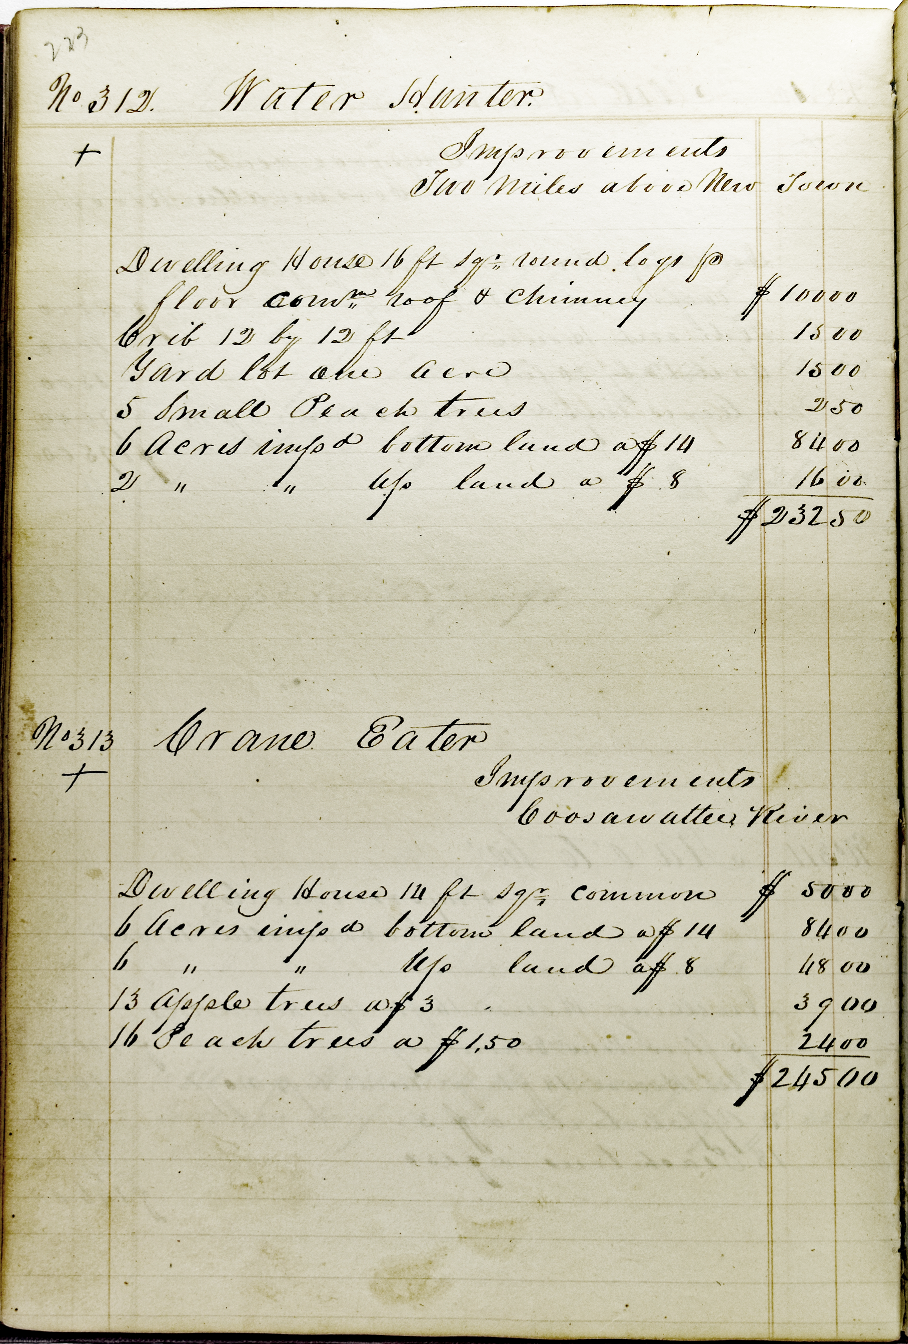 223
No 312. Water Hunter.
+
Improvements
Two Miles above New Town
Dwelling House 16 ft sqr. round logs p
floor comm roof & chimney $ 100 00
Crib 12 by 12 ft 15 00
Yard lot one acre 15 00
5 Small Peach trees 2 50
6 Acres impd bottom land a $ 14 84 00
2 " " Up land a $ 8 16 00
$ 232 50
No 313 Crane Eater
+
Improvements
Coosawattee River
Dwelling House 14 ft sqr. common $ 50 00
6 Acres impd bottom land a $ 14 84 00
6 " " Up land a $ 8 48 00
13 Apple trees a $ 3 39 00
16 Peach trees a $ 1,50 24 00
$ 245 00